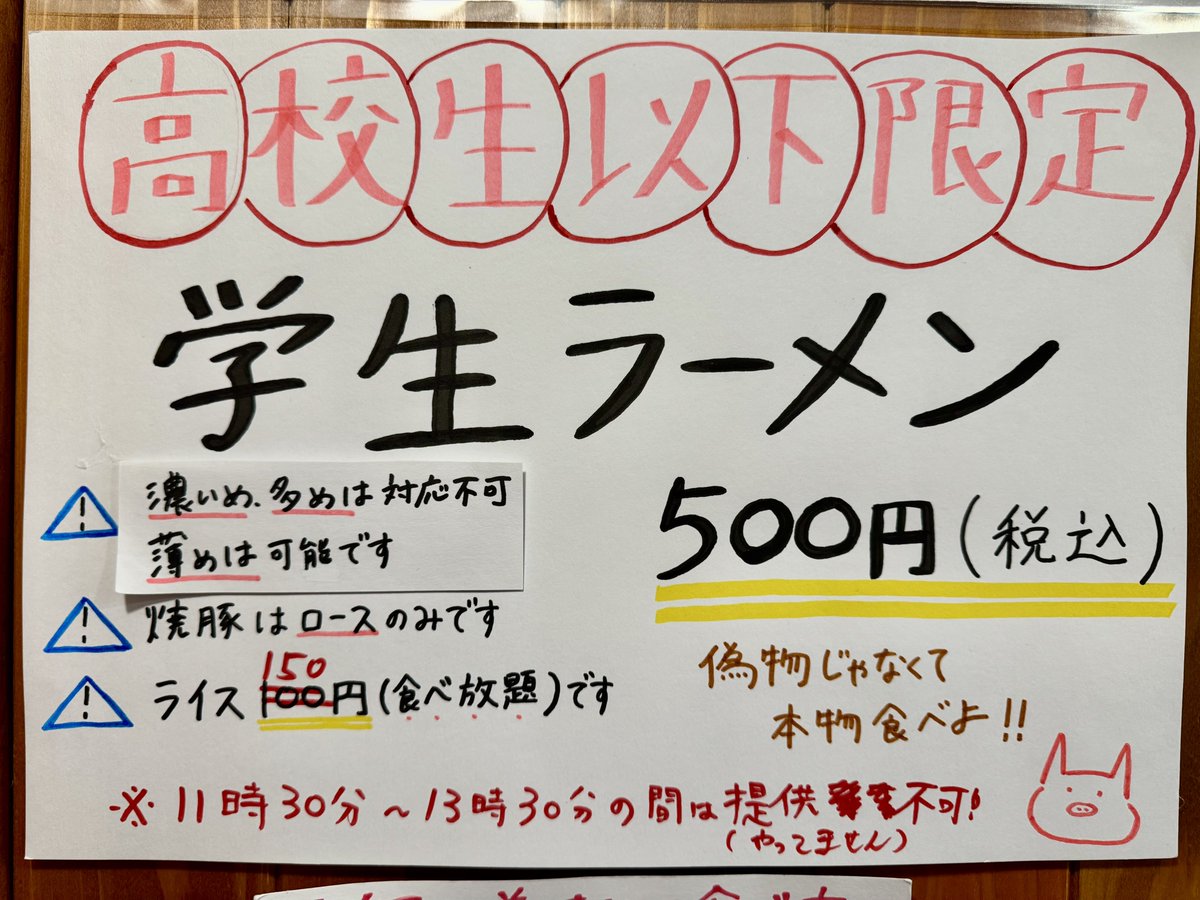 高校生以下限定
学生ラーメン
500円(税込)
濃いめ、多めは対応不可
薄めは可能です
焼豚はロースのみです
150
ライス 100円(食べ放題)です
偽物じゃなくて
本物食べよ!!
※11時30分~13時30分の間は提供不可!
(やってません)